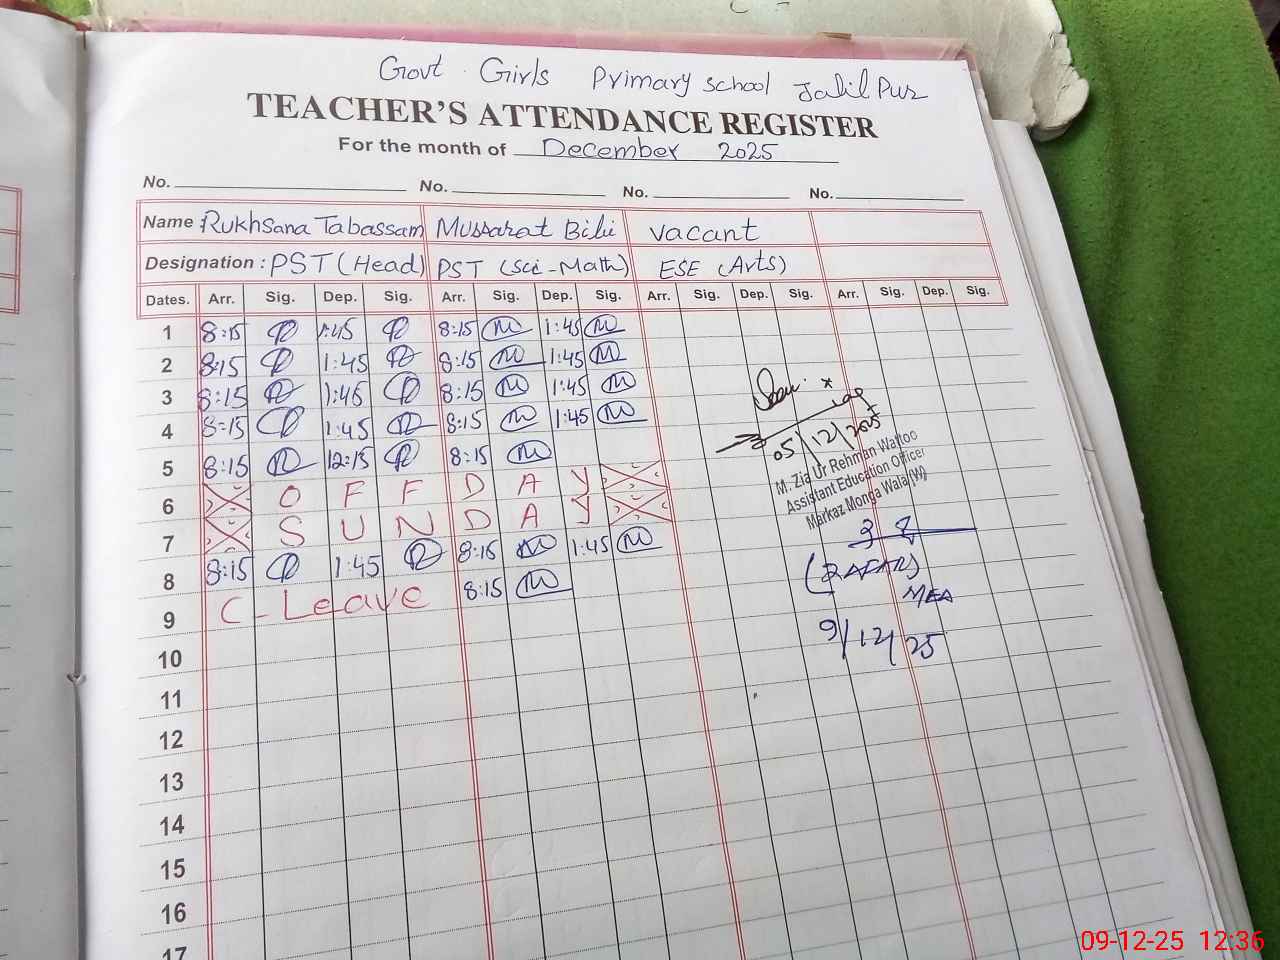 Govt. Girls Primary school Jalil Pur
TEACHER'S ATTENDANCE REGISTER
For the month of December 2025
No. No. No. No.
Name : Rukhsana Tabassam Mussarat Bibi vacant
Designation : PST (Head) PST (Sci-Math) ESE (Arts)
Dates. Arr. Sig. Dep. Sig. Arr. Sig. Dep. Sig. Arr. Sig. Dep. Sig. Arr. Sig. Dep. Sig.
1 8:15 1:45 8:15 M 1:45 M
2 8:15 1:45 8:15 M 1:45 M
3 8:15 1:45 8:15 M 1:45 M
4 8:15 1:45 8:15 M 1:45 M
5 8:15 12:15 8:15 M
6 OFF DAY
7 SUNDAY
8 8:15 1:45 8:15 M 1:45 M
9 C-Leave 8:15 M
10
11
12
13
14
15
16
17
05/12/2025
M. Zia Ur Rehman Wattoo
Assistant Education Officer
Markaz Monga Wala (W)
(ZAFAR)
MEA
9/12/25
09-12-25 12:36